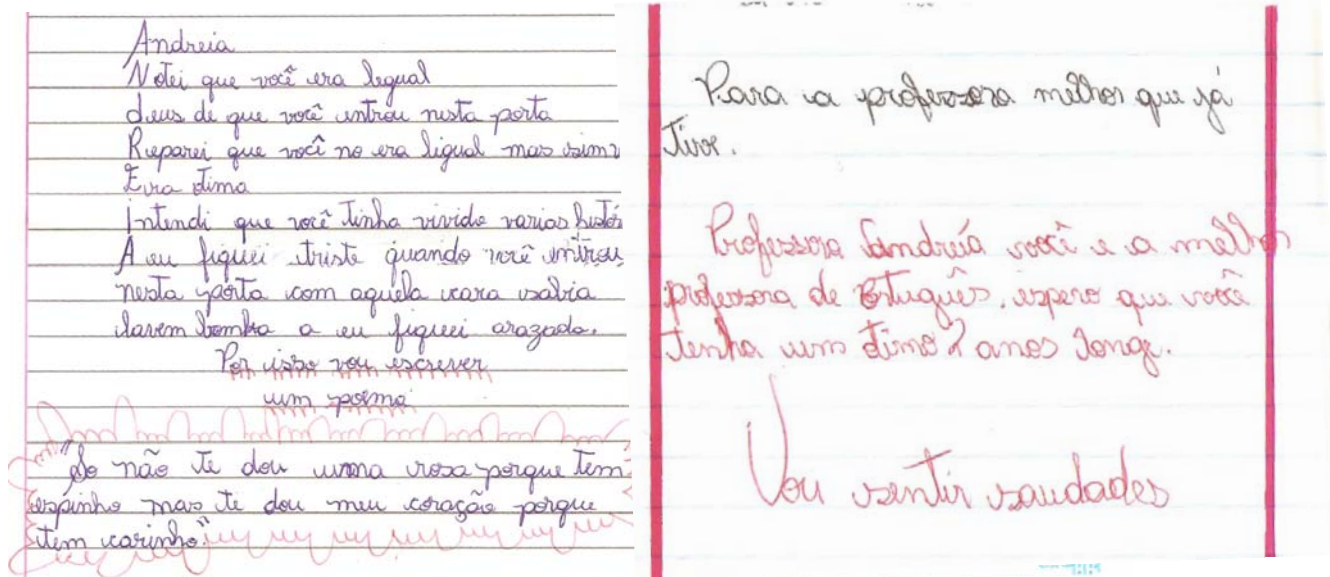 Andreia
Notei que você era legual
deus de que você entrou nesta porta
Reparei que você no era ligual mas sim
Era otima
Intendi que você tinha vivido varias histór
A eu fiquei triste quando você entrou
nesta porta com aquela cara sabia
lavem bomba a eu fiquei arazada.
Por isso vou escrever
um poema
"So não te dou uma rosa porque tem
espinho mas te dou meu coração porque
tem carinho."
Para a professora melhor que já
tive.
Professora Andreía você e a melhor
professora de Português, espero que você
tenha um ótimo 2 anos longe.
Vou sentir saudades